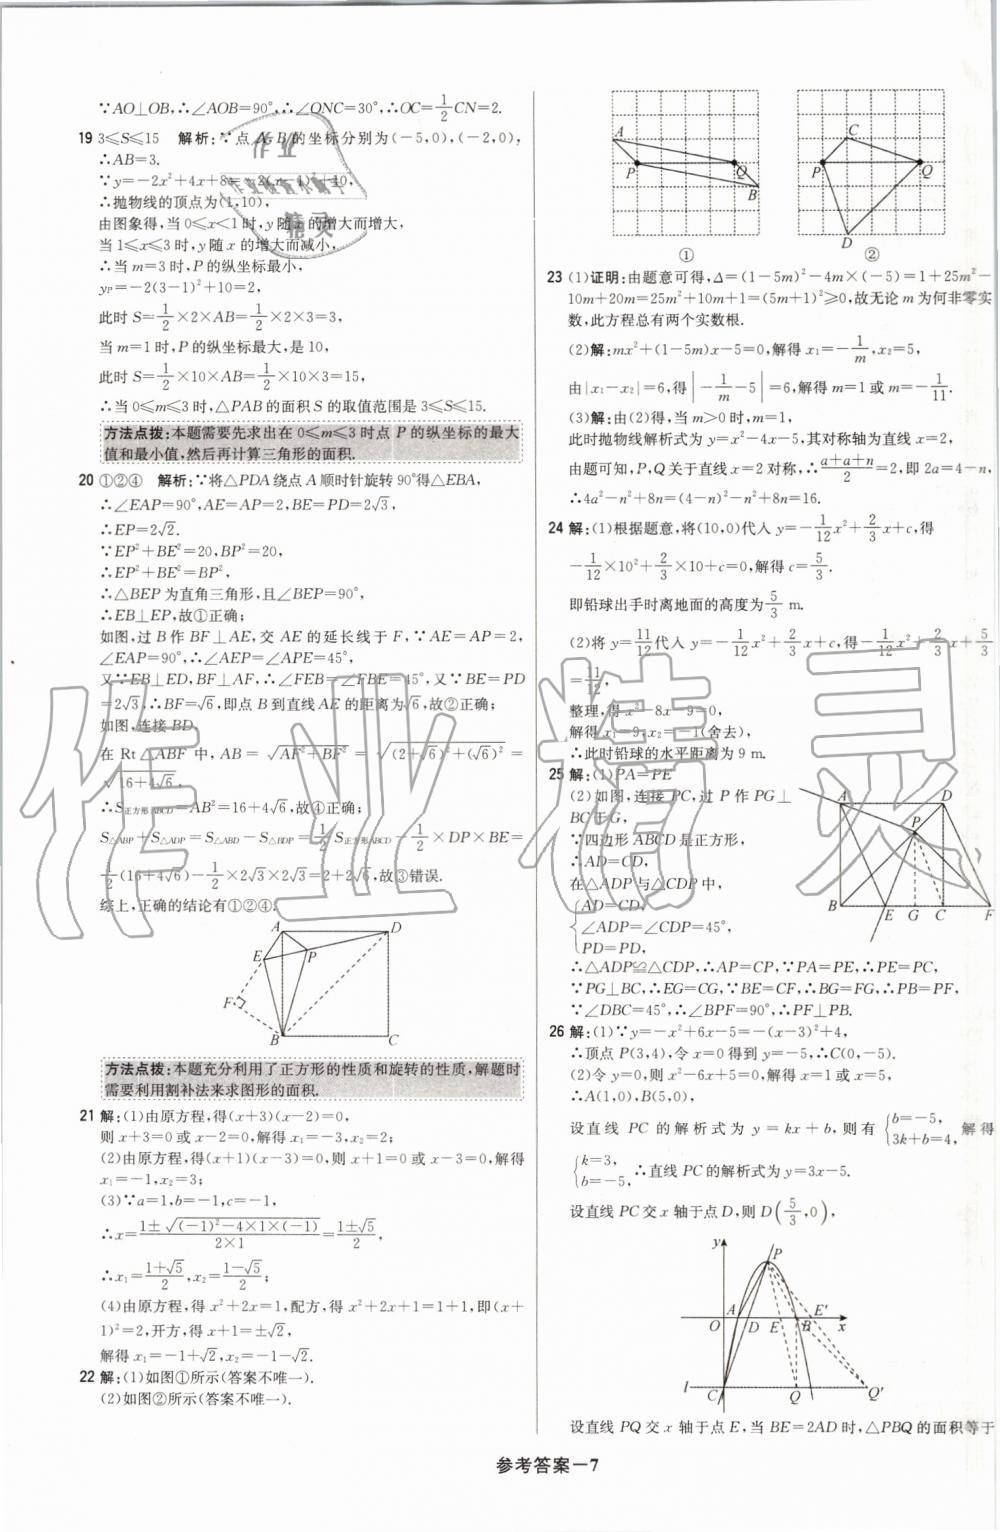 ∵AO⊥OB,∴∠AOB=90°,∴∠ONC=30°,∴OC=1/2CN=2.
19 3≤S≤15 解析:∵点A,B的坐标分别为(-5,0),(-2,0),
∴AB=3.
∵y=-2x²+4x+8=-2(x-1)²+10,
∴抛物线的顶点为(1,10),
由图象得,当0≤x<1时,y随x的增大而增大,
当1≤x≤3时,y随x的增大而减小,
∴当m=3时,P的纵坐标最小,
yP=-2(3-1)²+10=2,
此时S=1/2×2×AB=1/2×2×3=3,
当m=1时,P的纵坐标最大,是10,
此时S=1/2×10×AB=1/2×10×3=15,
∴当0≤m≤3时,△PAB的面积S的取值范围是3≤S≤15.
方法点拨:本题需要先求出在0≤m≤3时点P的纵坐标的最大
值和最小值,然后再计算三角形的面积.
20 ①②④ 解析:∵将△PDA绕点A顺时针旋转90°得△EBA,
∴∠EAP=90°,AE=AP=2,BE=PD=2√3,
∴EP=2√2.
∵EP²+BE²=20,BP²=20,
∴EP²+BE²=BP²,
∴△BEP为直角三角形,且∠BEP=90°,
∴EB⊥EP,故①正确;
如图,过B作BF⊥AE,交AE的延长线于F,∵AE=AP=2,
∠EAP=90°,∴∠AEP=∠APE=45°,
又∵EB⊥ED,BF⊥AF,∴∠FEB=∠FBE=45°,又∵BE=PD
=2√3,∴BF=√6,即点B到直线AE的距离为√6,故②正确;
如图,连接BD.
在Rt△ABF中,AB=√(AF²+BF²)=√((2+√6)²+(√6)²)=
√(16+4√6),
∴S正方形ABCD=AB²=16+4√6,故④正确;
S△ABP+S△ADP=S△ABD-S△BDP=1/2S正方形ABCD-1/2×DP×BE=
1/2(16+4√6)-1/2×2√3×2√3=2+2√6,故③错误.
综上,正确的结论有①②④.
A D E P F B C
方法点拨:本题充分利用了正方形的性质和旋转的性质,解题时
需要利用割补法来求图形的面积.
21 解:(1)由原方程,得(x+3)(x-2)=0,
则x+3=0或x-2=0,解得x₁=-3,x₂=2;
(2)由原方程,得(x+1)(x-3)=0,则x+1=0或x-3=0,解得
x₁=-1,x₂=3;
(3)∵a=1,b=-1,c=-1,
∴x=(1±√((-1)²-4×1×(-1)))/(2×1)=(1±√5)/2,
∴x₁=(1+√5)/2,x₂=(1-√5)/2;
(4)由原方程,得x²+2x=1,配方,得x²+2x+1=1+1,即(x+
1)²=2,开方,得x+1=±√2,
解得x₁=-1+√2,x₂=-1-√2.
22 解:(1)如图①所示(答案不唯一).
(2)如图②所示(答案不唯一).
A P Q B ①
C P Q D ②
23 (1)证明:由题意可得,Δ=(1-5m)²-4m×(-5)=1+25m²-
10m+20m=25m²+10m+1=(5m+1)²≥0,故无论m为何非零实
数,此方程总有两个实数根.
(2)解:mx²+(1-5m)x-5=0,解得x₁=-1/m,x₂=5,
由|x₁-x₂|=6,得|-1/m-5|=6,解得m=1或m=-1/11.
(3)解:由(2)得,当m>0时,m=1,
此时抛物线解析式为y=x²-4x-5,其对称轴为直线x=2,
由题可知,P,Q关于直线x=2对称,∴(a+a+n)/2=2,即2a=4-n,
∴4a²-n²+8n=(4-n)²-n²+8n=16.
24 解:(1)根据题意,将(10,0)代入y=-1/12x²+2/3x+c,得
-1/12×10²+2/3×10+c=0,解得c=5/3.
即铅球出手时离地面的高度为5/3 m.
(2)将y=11/12代入y=-1/12x²+2/3x+c,得-1/12x²+2/3x+5/3
=11/12,
整理,得x²-8x-9=0,
解得x₁=9,x₂=-1(舍去),
∴此时铅球的水平距离为9 m.
25 解:(1)PA=PE
(2)如图,连接PC,过P作PG⊥
BC于G,
∵四边形ABCD是正方形,
∴AD=CD,
在△ADP与△CDP中,
{AD=CD,
∠ADP=∠CDP=45°,
PD=PD,
A D P B E G C F
∴△ADP≌△CDP,∴AP=CP,∵PA=PE,∴PE=PC,
∵PG⊥BC,∴EG=CG,∵BE=CF,∴BG=FG,∴PB=PF,
∵∠DBC=45°,∴∠BPF=90°,∴PF⊥PB.
26 解:(1)∵y=-x²+6x-5=-(x-3)²+4,
∴顶点P(3,4),令x=0得到y=-5,∴C(0,-5).
(2)令y=0,则x²-6x+5=0,解得x=1或x=5,
∴A(1,0),B(5,0),
设直线PC的解析式为y=kx+b,则有{b=-5, 3k+b=4, 解得
{k=3, b=-5, ∴直线PC的解析式为y=3x-5.
设直线PC交x轴于点D,则D(5/3,0),
y P A E′ O D E B x l C Q Q′
设直线PQ交x轴于点E,当BE=2AD时,△PBQ的面积等于
参考答案—7
作业精灵